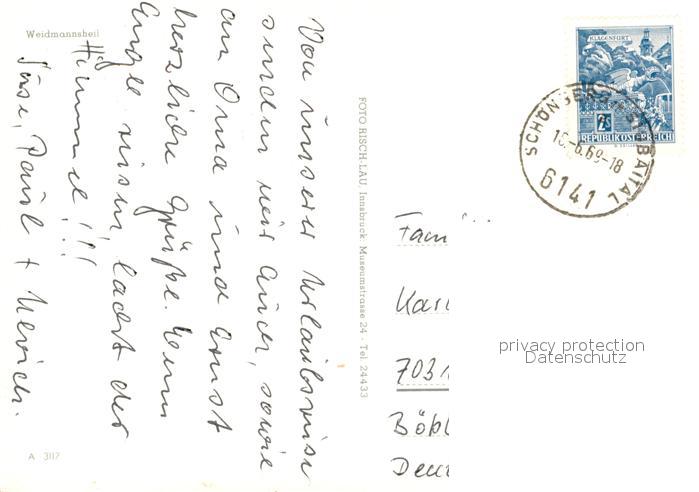 Weidmannsheil
Von unserer Urlaubsreise
senden wir Euch, sowie
an Oma und Ernst
herzliche Grüße. Wenn
Engel reisen, lacht der
Himmel!!!
Paul +
A 3117
FOTO RISCH-LAU, Innsbruck Museumstrasse 24 - Tel. 24433
KLAGENFURT
2S
REPUBLIK ÖSTERREICH
6.69-18
6141
Fam
Karl
7031
Böbl
Deut
privacy protection
Datenschutz